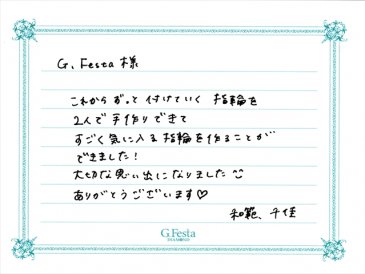 G.Festa 様
これから ずっと 付けていく 指輪を
2人で 手作りできて
すごく気に入る指輪を作ることが
できました!
大切な思い出になりました☺
ありがとうございます♡
和範、千佳
G.Festa
DIAMOND